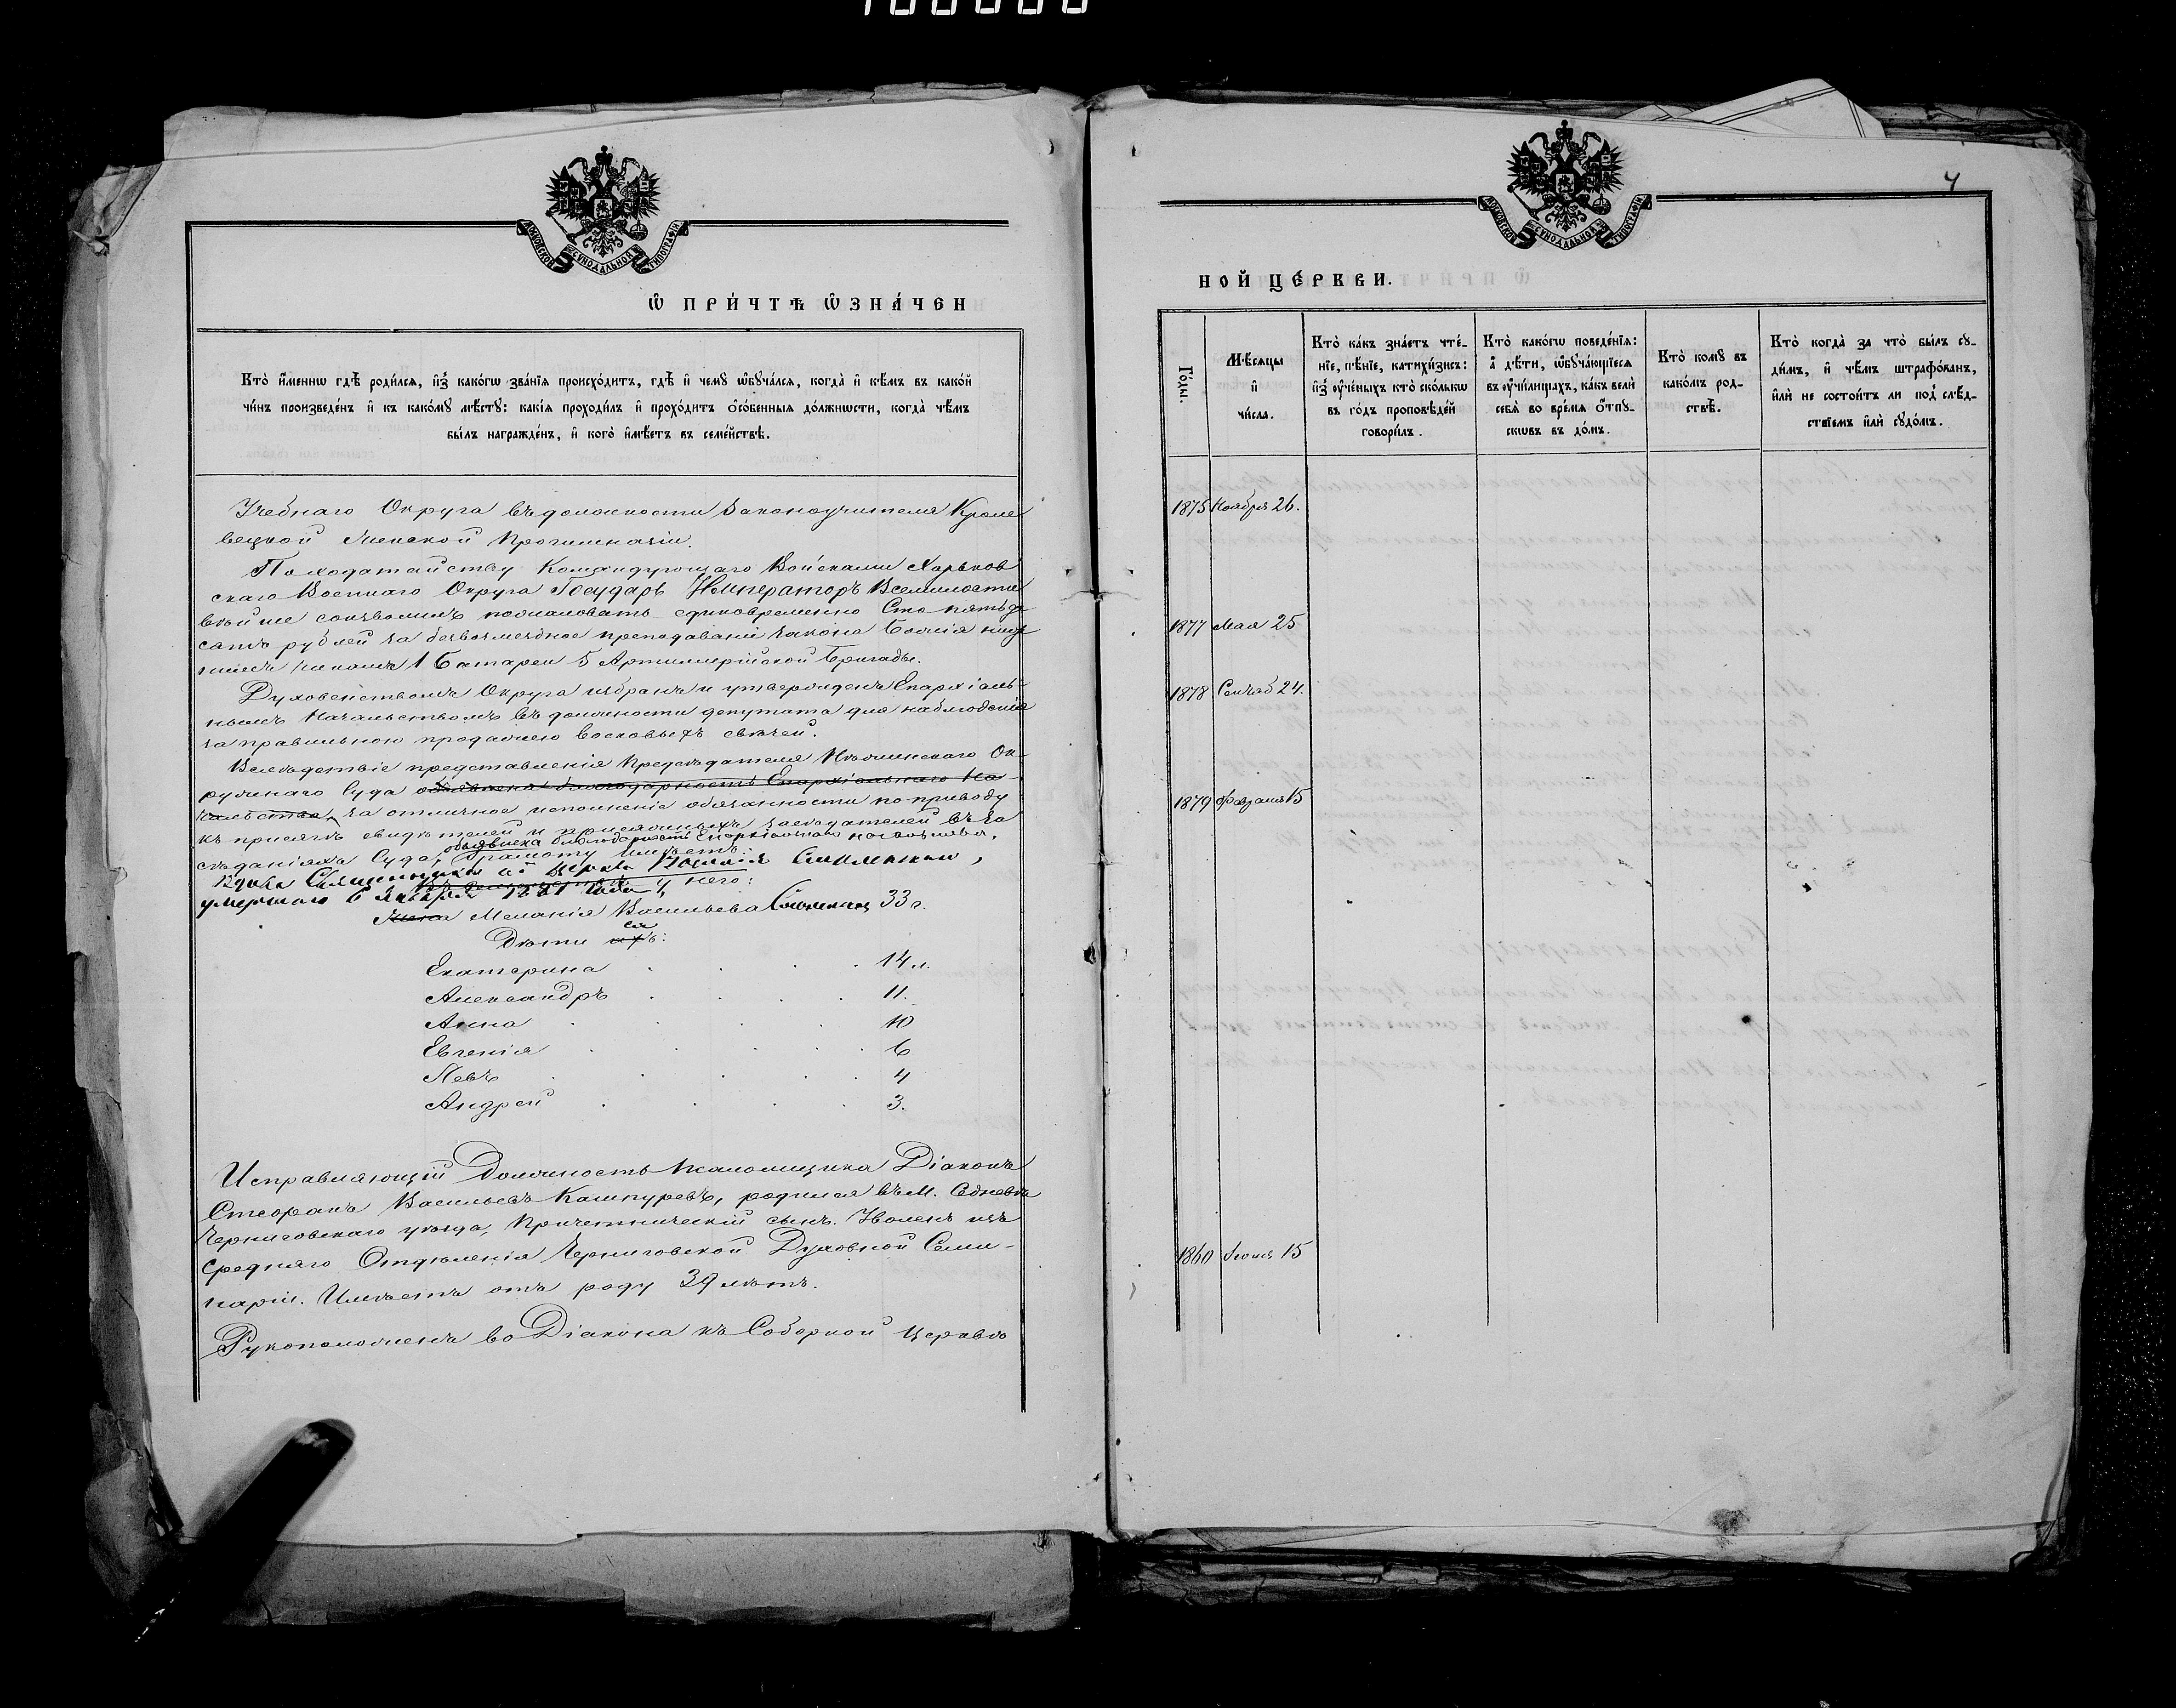 МОСКОВСКОЙ СѴНОДАЛЬНОЙ ТИПОГРАФІИ
Ѡ ПРИ́ЧТѢ ѠЗНА́ЧЕН
Кто̀ и҆́меннѡ гдѣ̀ роди́лсѧ, и҆з̾ како́гѡ зва́нїѧ происхо́дитъ, гдѣ̀ и҆ чемꙋ̀ ѡ҆бꙋча́лсѧ, когда̀ и҆ кѣ́мъ въ како́й
чи́нъ произведе́нъ и҆ къ како́мꙋ мѣ́стꙋ: какі́ѧ проходи́лъ и҆ прохо́дитъ ѻ҆со́бенныѧ до́лжнѡсти, когда̀ чѣ́мъ
бы́лъ награжде́нъ, и҆ кого̀ и҆мѣ́етъ въ семе́йствѣ.
Учебнаго Округа въ должности Законоучителя Кроле
вецкой Женской Прогимназіи.
По ходатайству Командующаго Войсками Харьков
скаго Военнаго Округа Государь Императоръ Всемилости
вѣйше соизволилъ пожаловать единовременно Сто пятьде
сятъ рублей за безвозмездное преподаваніе закона Божія ниж
нимъ чинамъ 1 батареи 5 Артиллерійской Бригады.
Духовенствомъ Округа избранъ и утвержденъ Епархіаль
нымъ Начальствомъ въ должности депутата для наблюденія
за правильною продажею восковыхъ свѣчей.
Вслѣдствіе представленія Предсѣдателя Нѣжинскаго Ок-
ружнаго Суда объявлена благодарность Епархіальнаго На-
чальства, за отличное исполненіе обязанности по приводу
къ присягѣ свидѣтелей и присяжныхъ засѣдателей въ за
объявлена благодарность Епархіальнаго начальства.
сѣданіяхъ Суда, Грамоту имѣетъ.
Вдова Священника сей церкви Василія Смоленскаго,
умершаго 6 Января 1881 года у него:
Жена Меланія Васильева Смоленская 33 г.
Дѣти ихъ: ея
Екатерина 14 л.
Александръ 11.
Анна 10
Евгенія 6
Левъ 4
Андрей 3.
Исправляющій Должность псаломщика Діаконъ
Стефанъ Васильевъ Кашпуревъ, родился въ М. Седневѣ
Черниговскаго уѣзда, Причетническій сынъ. Уволенъ изъ
Средняго Отдѣленія Черниговской Духовной Семи-
наріи. Имѣетъ отъ роду 39 лѣтъ.
Рукоположенъ во Діакона къ Соборной церкви
4
МОСКОВСКОЙ СѴНОДАЛЬНОЙ ТИПОГРАФІИ
НОЙ ЦЕ́РКВИ.
Го́ды.
Мѣ́сѧцы
и҆
чи́сла.
Кто̀ ка́къ зна́етъ чте́-
нїе, пѣ́нїе, катихи́зисъ:
и҆з̾ ᲂу҆че́ныхъ кто̀ ско́лькѡ
въ го́дъ проповѣ́дей
говори́лъ.
Кто̀ како́гѡ поведе́нїѧ:
а҆ дѣ́ти, ѡ҆бꙋча́ющїесѧ
въ ᲂу҆чи́лищахъ, ка́къ велѝ
себѧ̀ во вре́мѧ ѿпꙋ-
скѡвъ въ до́мъ.
Кто̀ комꙋ̀ въ
како́мъ род-
ствѣ̀.
Кто̀ когда̀ за что̀ бы́лъ сꙋ-
ди́мъ, и҆ чѣ́мъ штрафо́ванъ,
и҆лѝ не состои́тъ ли под̾ слѣ́д-
ствїемъ и҆лѝ сꙋдо́мъ.
1875 Ноября 26.
1877 Мая 25
1878 Сентяб 24.
1879 Февраля 15
1860 Іюня 15